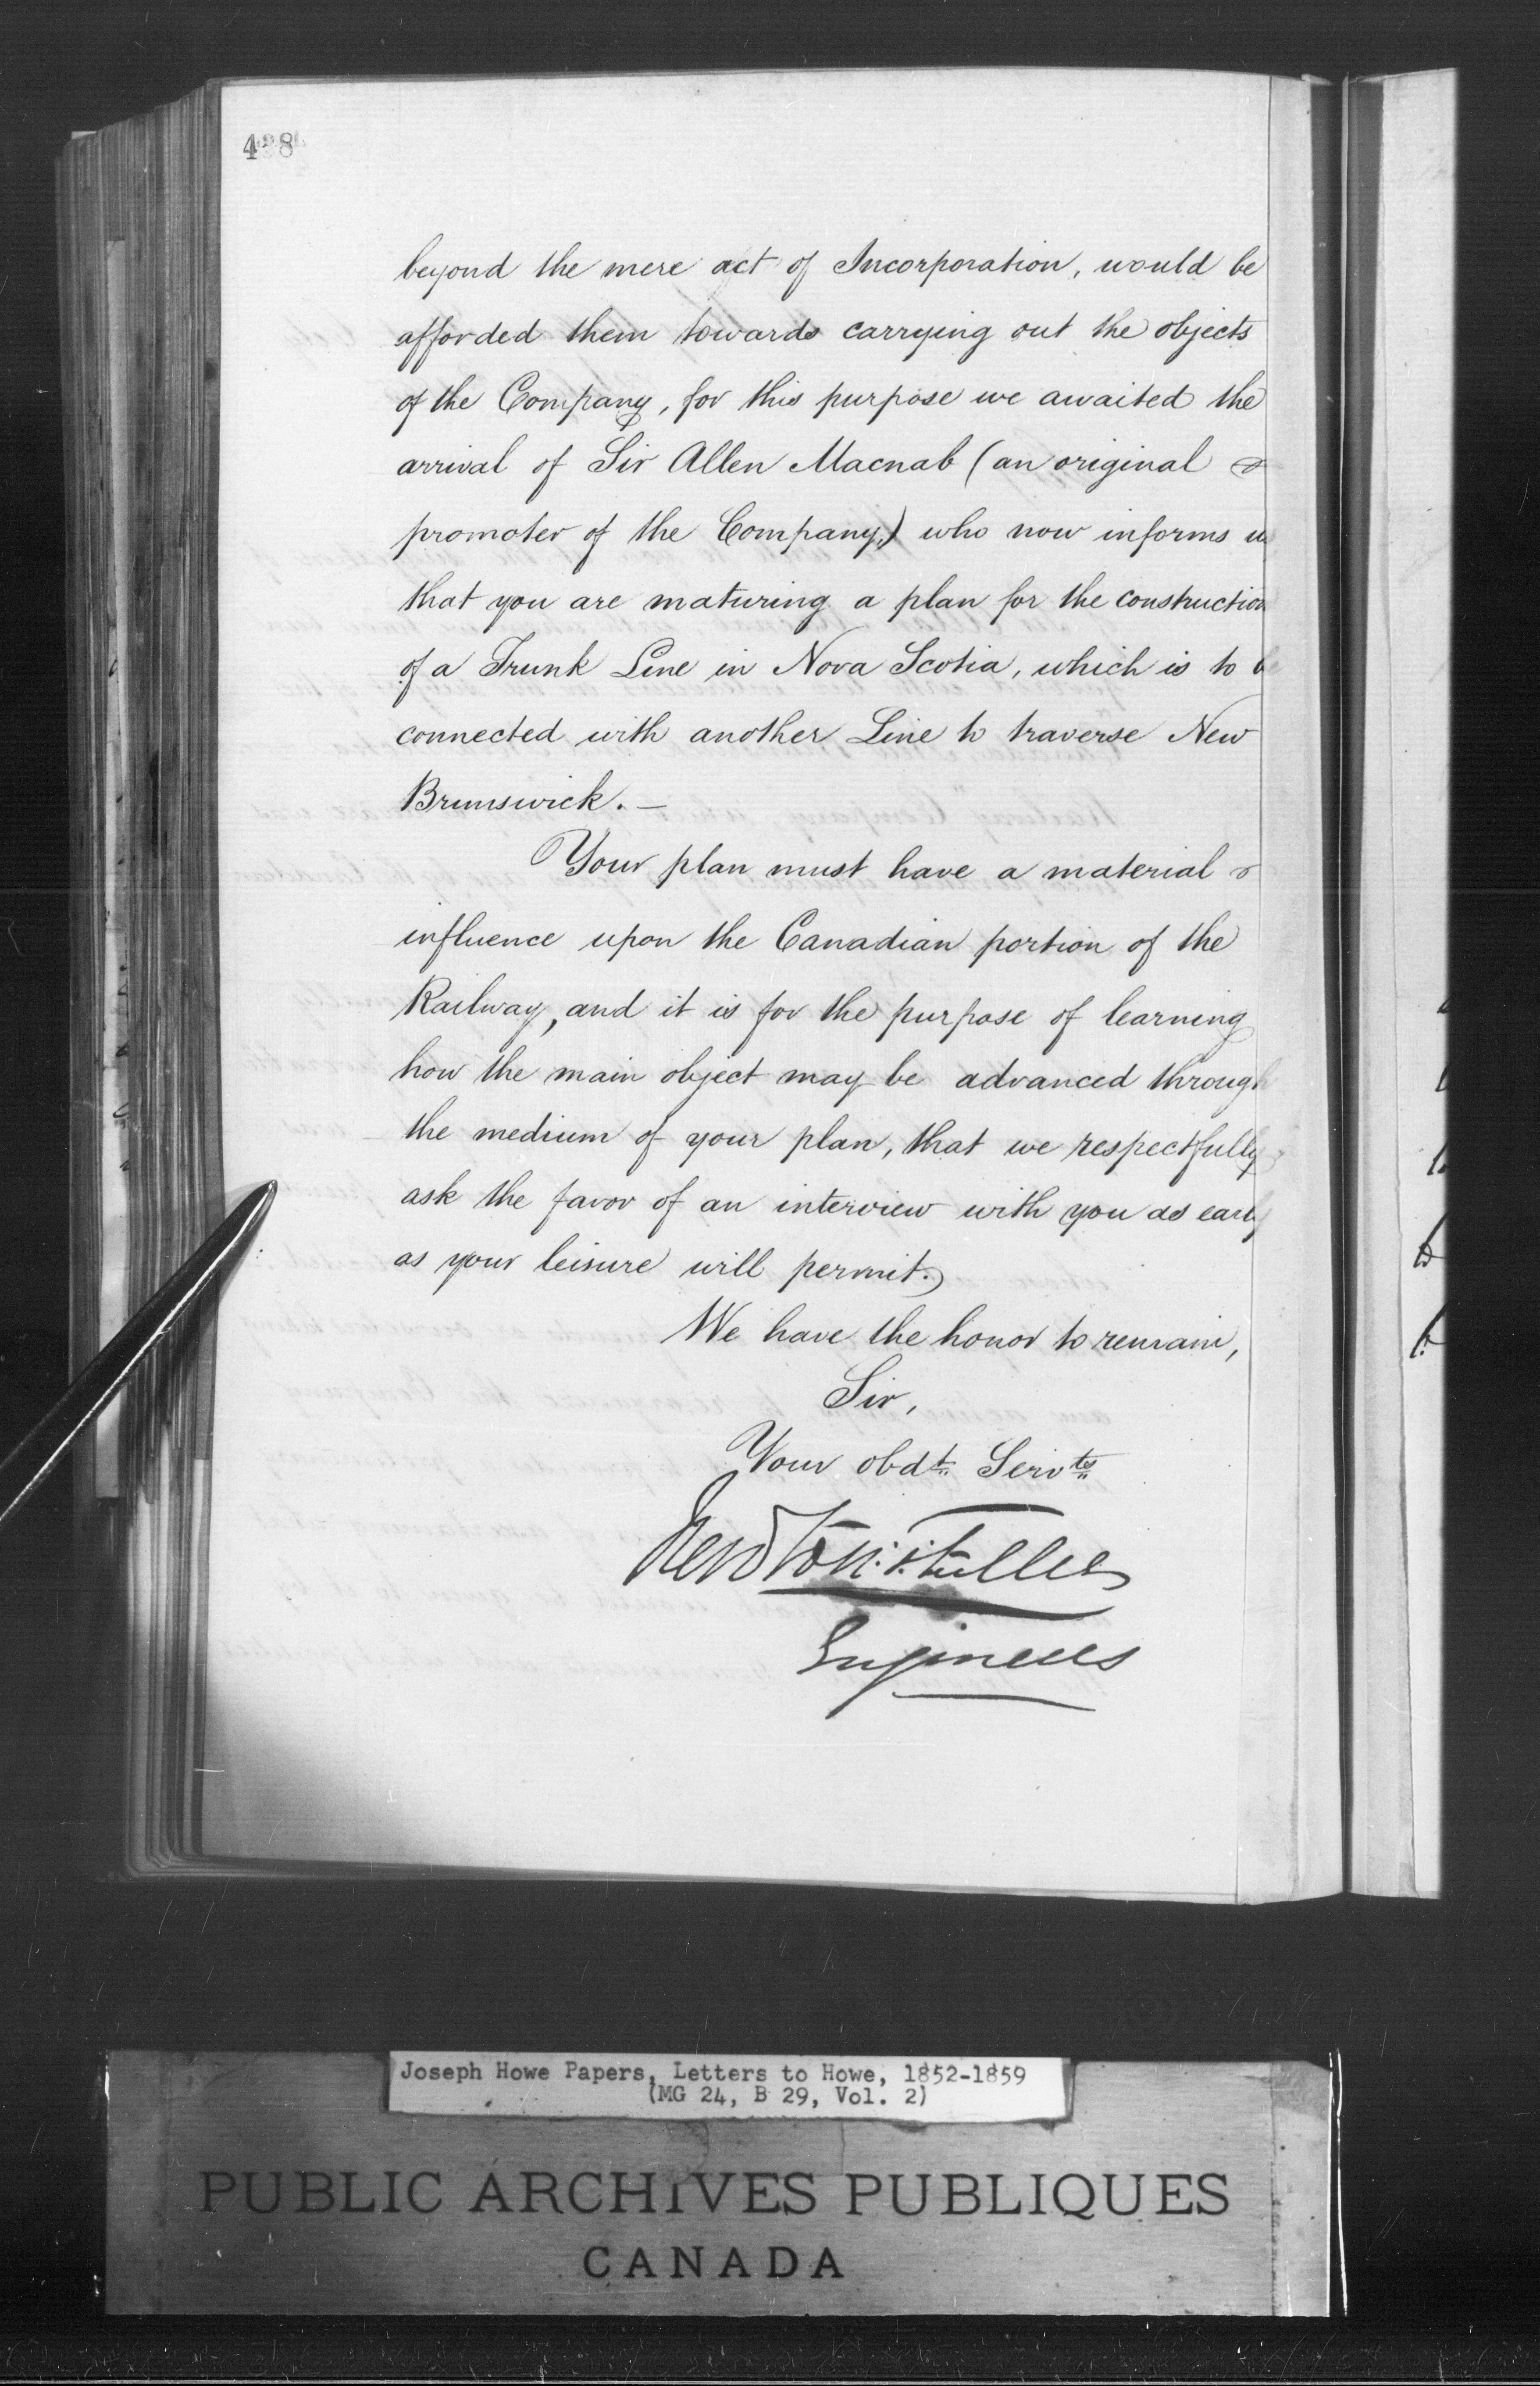 428
beyond the mere act of Incorporation, would be
afforded them towards carrying out the objects
of the Company, for this purpose we awaited the
arrival of Sir Allen Macnab (an original &
promoter of the Company,) who now informs us
that you are maturing a plan for the construction
of a Trunk Line in Nova Scotia, which is to be
connected with another Line to traverse New
Brunswick. —
Your plan must have a material &
influence upon the Canadian portion of the
Railway, and it is for the purpose of learning
how the main object may be advanced through
the medium of your plan, that we respectfully
ask the favor of an interview with you as early
as your leisure will permit.
We have the honor to remain,
Sir,
Your obdt. Servts
Engineers
Joseph Howe Papers, Letters to Howe, 1852-1859
(MG 24, B 29, Vol. 2)
PUBLIC ARCHIVES PUBLIQUES
CANADA